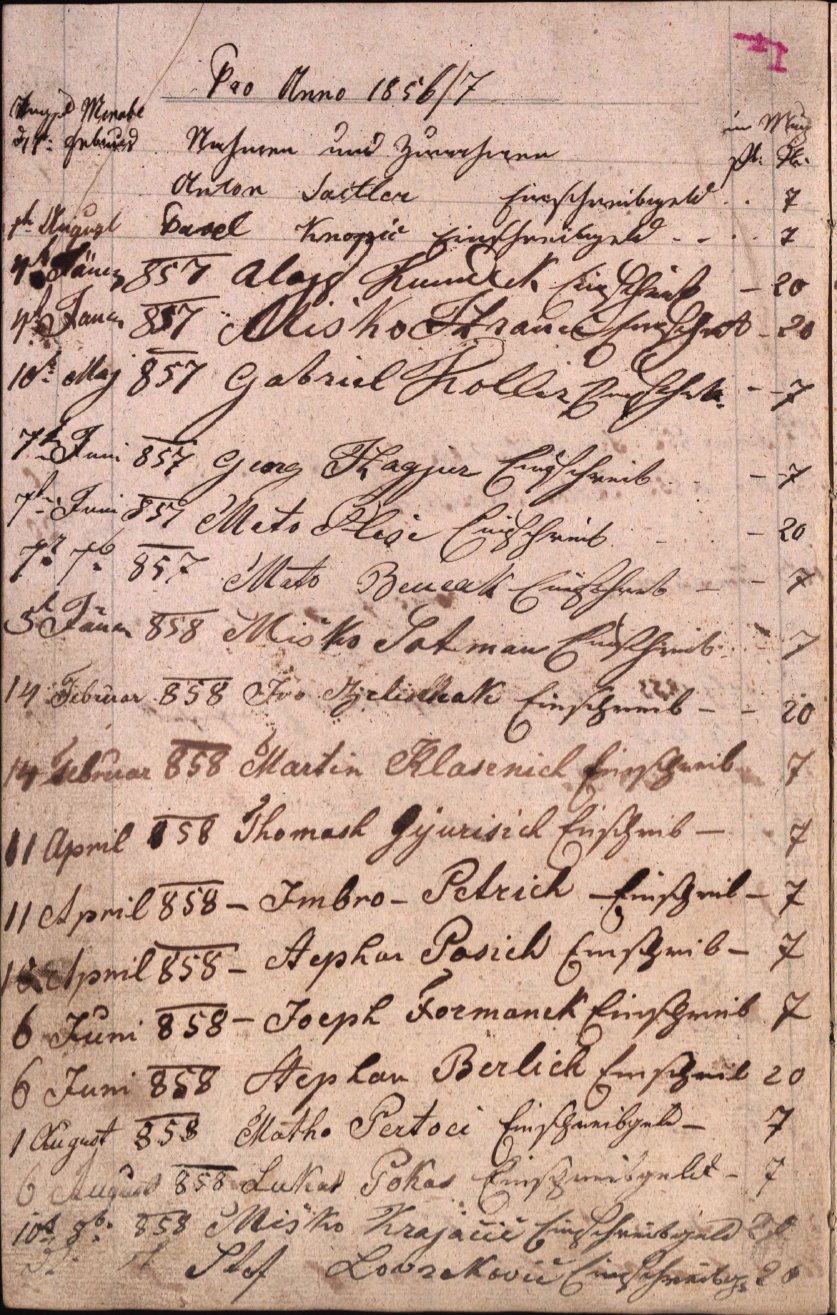 Pro Anno 1856/7
Nahmen und Zunahmen
Anton Sattler Einschreibgeld 7
1t August Pavel Knopić Einschreibgeld 7
4t Jäner 857 Alojs Einschreib 20
4t Januar 857 Miško Einschreib 20
10t Maj 857 Gabriel Koller Einschreib 7
7t Juni 857 Georg Einschreib 7
7t Juni 857 Mato Einschreib 20
7t 7b 857 Mato Einschreib 7
5t Jäner 858 Miško Einschreib 7
14 Februar 858 Ivo Einschreib 20
14 Februar 858 Martin Klasenich Einschreib 7
11 April 858 Thomash Gjurisich Einschreib 7
11 April 858 Imbro Petrich Einschreib 7
April 858 Stephan Posich Einschreib 7
6 Juni 858 Joeph Formanek Einschreib 7
6 Juni 858 Stephan Berlich Einschreib 20
1 August 858 Matho Pertoci Einschreibgeld 7
6 August 858 Lukas Pokas Einschreibgeld 7
10t 8b 858 Miško Krajačić Einschreibgeld 20
Stef Lovreković Einschreibg 20